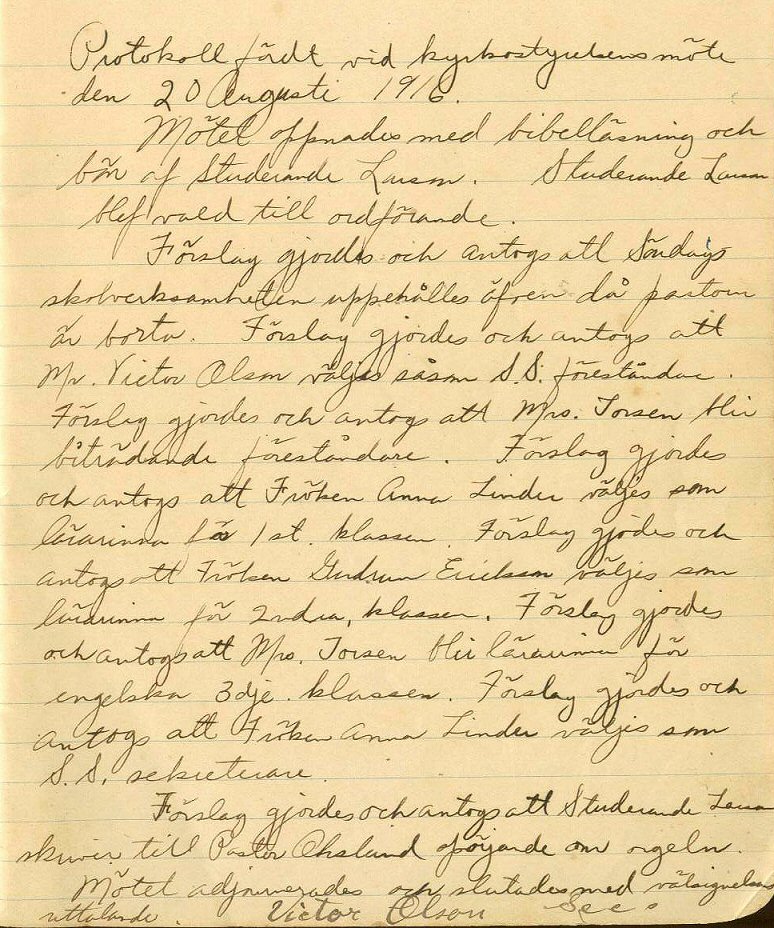 Protokoll fördt vid kyrkostyrelsens möte
den 20 Augusti 1916.
Mötet öppnades med bibelläsning och
bön af Studerande Larson. Studerande Larson
blef vald till ordförande.
Förslag gjordes och antogs att Söndags
skolverksamheten uppehålles äfven då pastorn
är borta. Förslag gjordes och antogs att
Mr. Victor Olson väljes såsom S.S. föreståndare.
Förslag gjordes och antogs att Mrs. Torsen blir
biträdande föreståndare. Förslag gjordes
och antogs att Fröken Anna Linder väljes som
lärarinna för 1st. klassen. Förslag gjödes och
antogs att Fröken Gudrun Erickson väljes som
lärarinna för 2ndra, klassen. Förslag gjordes
och antogs att Mrs. Torsen blir lärarinna för
engelska 3dje. klassen. Förslag gjordes och
antogs att Fröken Anna Linder väljes som
S.S. sekreterare.
Förslag gjordes och antogs att Studerande Larson
skriver till Pastor om orgeln.
Mötet och slutades med välsignelsens
uttalande. Victor Olson Sec.